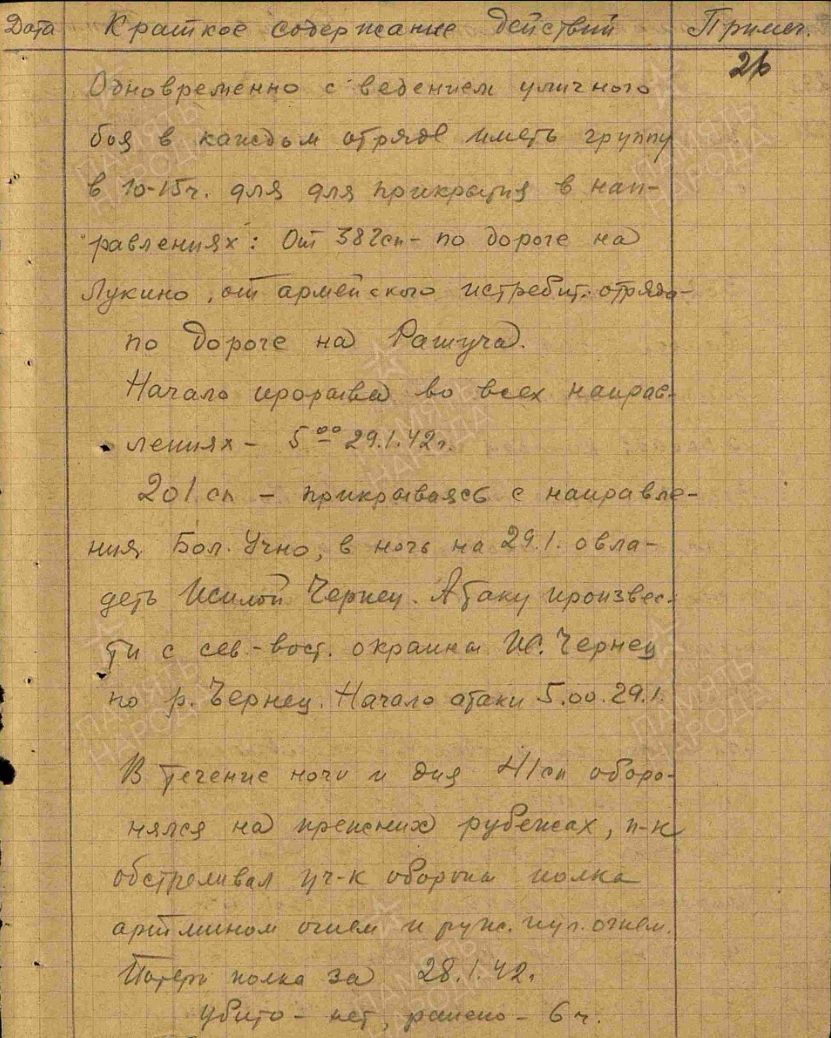 Дата Краткое содержание действий Примеч.
26
Одновременно с ведением уличного
боя в каждом отряде иметь группу
в 10-15ч. для для прикрытия в нап-
равлениях: От 382сп - по дороге на
Лукино, от армейского истребит. отряда-
по дороге на
Начало прорыва во всех направ-
лениях - 5 00 29.1.42г.
201 сп - прикрываясь с направле-
ния Бол. Учно, в ночь на 29.1. овла-
деть Жилой Чернец. Атаку произвес-
ти с сев-вост. окраины Ж. Чернец
по р. Чернец. Начало атаки 5.00. 29.1.
В течение ночи и дня 41сп оборо-
нялся на прежних рубежах, п-к
обстреливал уч-к обороны полка
арт мином огнем и руж. пул. огнем.
Потери полка за 28.1.42г.
убито - нет, ранено - 6 ч.
ПАМЯТЬ НАРОДА